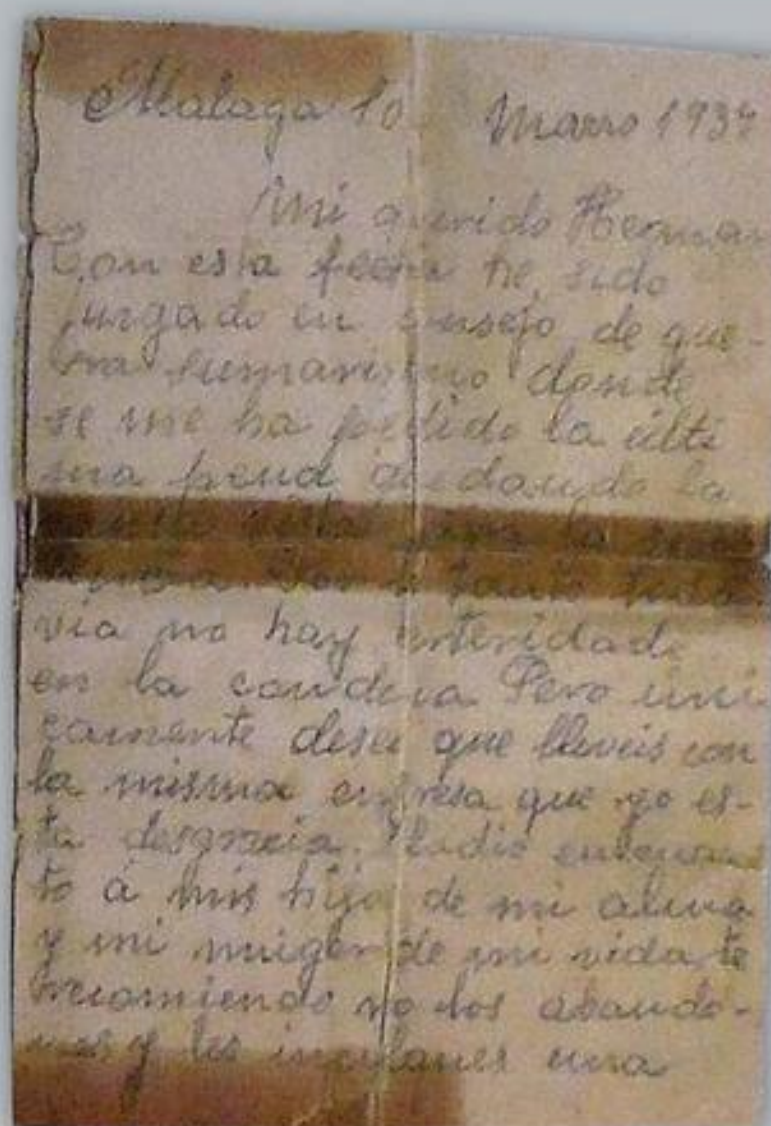 Malaga 10 Marzo 1937
Mi querido Herman
Con esta fecha he sido
jurgado en consejo de gue-
rra sumarisimo donde
se me ha pedido la ulti
ma pena quedando la
via no hay
en la condena Pero uni
camente deseo que lleveis con
la misma entresa que yo es-
ta desgracia. Eladio encuan
to á mis hijos de mi alma
y mi muger de mi vida te
recomiendo no los abando-
nes y les inculques una